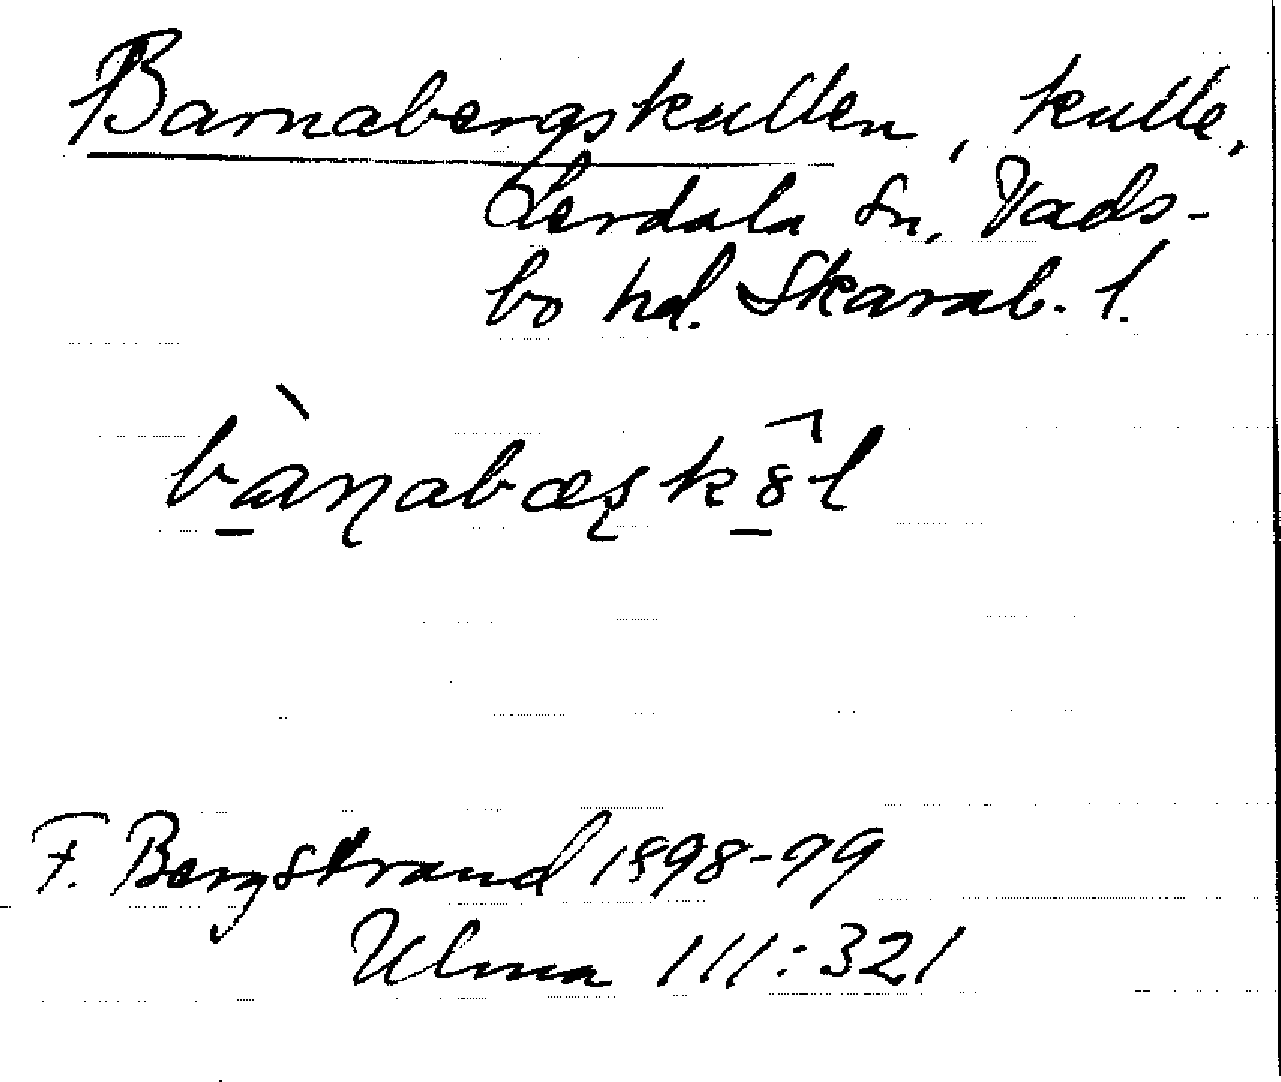 Barnabergskullen, kulle,
Lerdala sn, Vads-
bo hd. Skarab. l.
bàɳabæʂkȣ̂l
F. Bergstrand 1898-99
Ulma 111:321